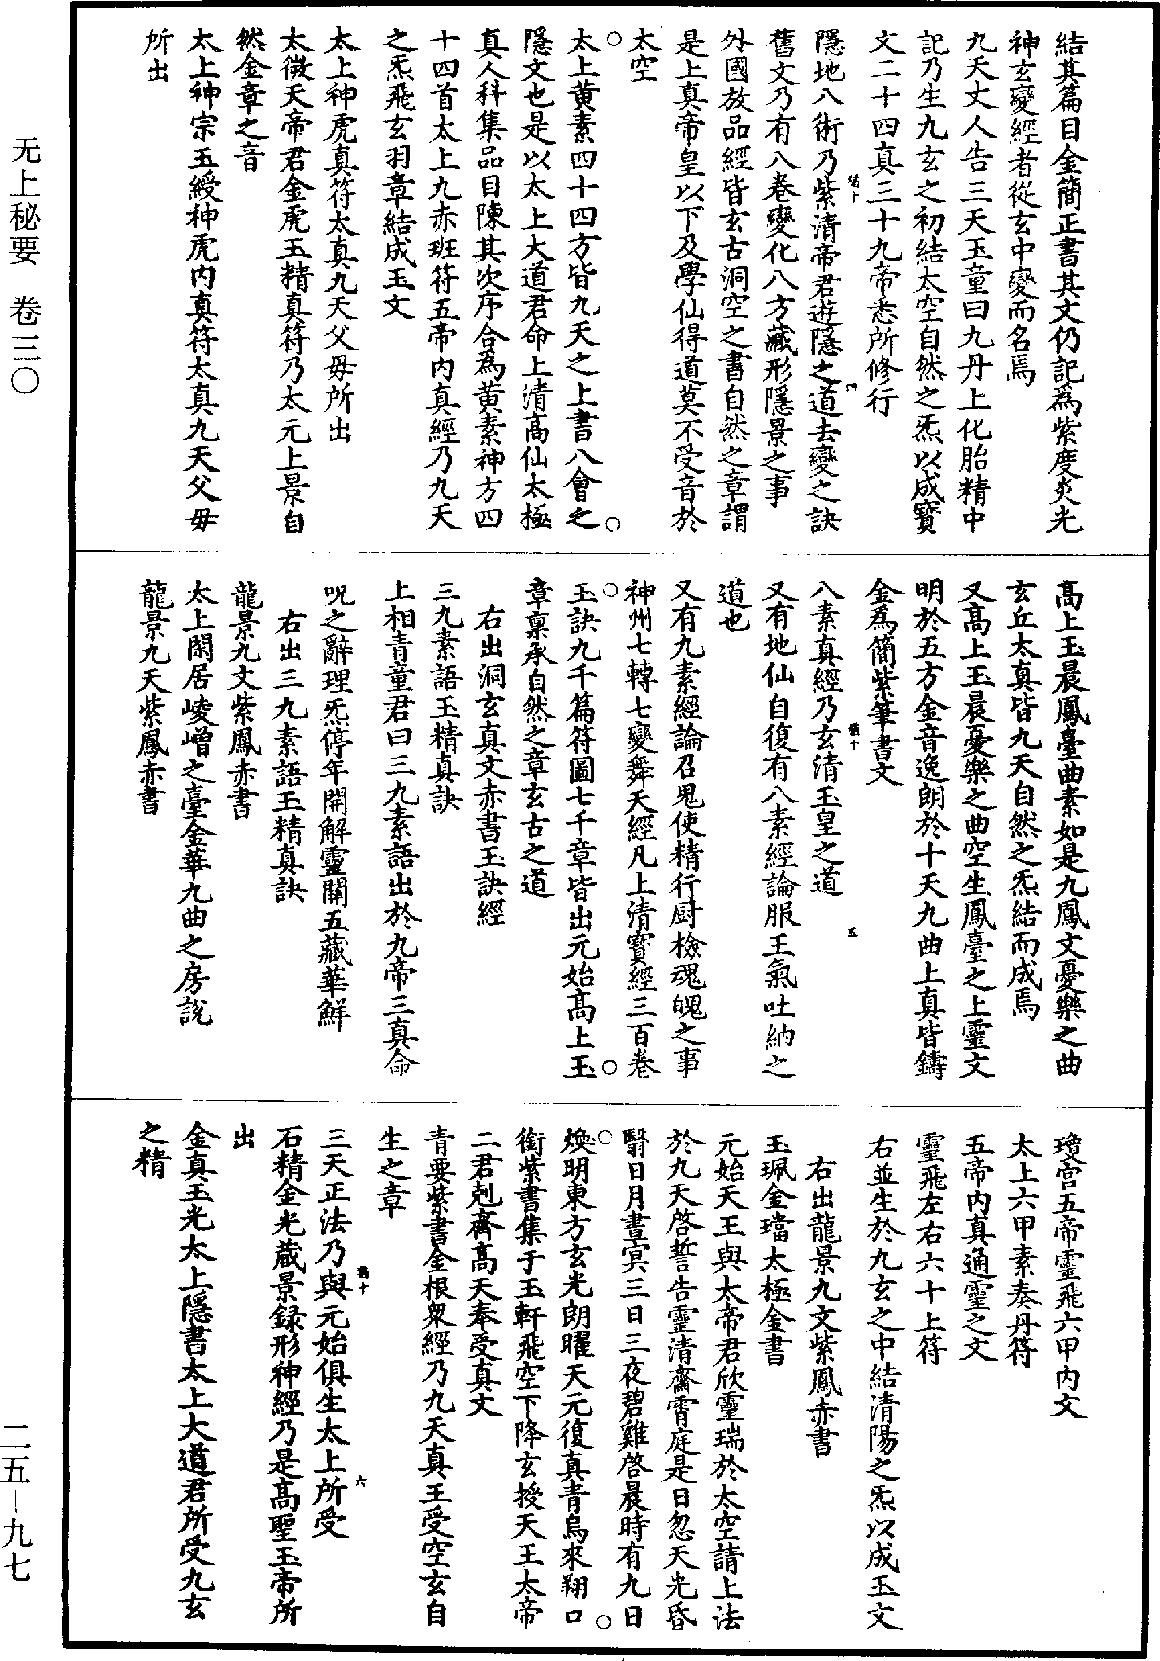 无上秘要　卷三〇
結其篇目金簡正書其文仍記為紫度炎光
神玄變經者從玄中變而名焉
九天丈人告三天玉童曰九丹上化胎精中
記乃生九玄之初結太空自然之炁以成寶
文二十四真三十九帝悉所修行
隱地八術乃紫清帝君遊隱之道去變之訣
舊文乃有八卷變化八方藏形隱景之事
外國放品經皆玄古洞空之書自然之章謂
是上真帝皇以下及學仙得道莫不受音於
太空
太上黃素四十四方皆九天之上書八會之
隱文也是以太上大道君命上清高仙太極
真人科集品目陳其次序合為黃素神方四
十四首太上九赤班符五帝內真經乃九天
之炁飛玄羽章結成玉文
太上神虎真符太真九天父母所出
太微天帝君金虎玉精真符乃太元上景自
然金章之音
太上神宗玉綬神虎內真符太真九天父母
所出
高上玉晨鳳臺曲素如是九鳳文憂樂之曲
玄丘太真皆九天自然之炁結而成焉
又高上玉晨憂樂之曲空生鳳臺之上靈文
明於五方金音逸朗於十天九曲上真皆鑄
金為簡紫筆書文
八素真經乃玄清玉皇之道
五
又有地仙自復有八素經論服王氣吐納之
道也
又有九素經論召鬼使精行廚檢魂魄之事
神州七轉七變舞天經凡上清寶經三百卷
玉訣九千篇符圖七千章皆出元始高上玉
章稟承自然之章玄古之道
右出洞玄真文赤書玉訣經
三九素語玉精真訣
上相青童君曰三九素語出於九帝三真命
呪之辭理炁停年開解靈關五藏華鮮
右出三九素語玉精真訣
龍景九文紫鳳赤書
太上閑居崚嶒之臺金華九曲之房說
龍景九天紫鳳赤書
瓊宮五帝靈飛六甲內文
太上六甲素奏丹符
五帝內真通靈之文
靈飛左右六十上符
右並生於九玄之中結清陽之炁以成玉文
右出龍景九文紫鳳赤書
玉珮金璫太極金書
元始天王與太帝君欣靈瑞於太空請上法
於九天啓誓告靈清齋霄庭是日忽天光昏
翳日月晝冥三日三夜碧雞啓晨時有九日
煥明東方玄光朗曜天元復真青鳥來翔口
銜紫書集于玉軒飛空下降玄授天王太帝
二君剋齋高天奉受真文
青要紫書金根衆經乃九天真王受空玄自
生之章
三天正法乃與元始俱生太上所受
六
石精金光藏景録形神經乃是高聖玉帝所
出
金真玉光太上隱書太上大道君所受九玄
之精
二五—九七